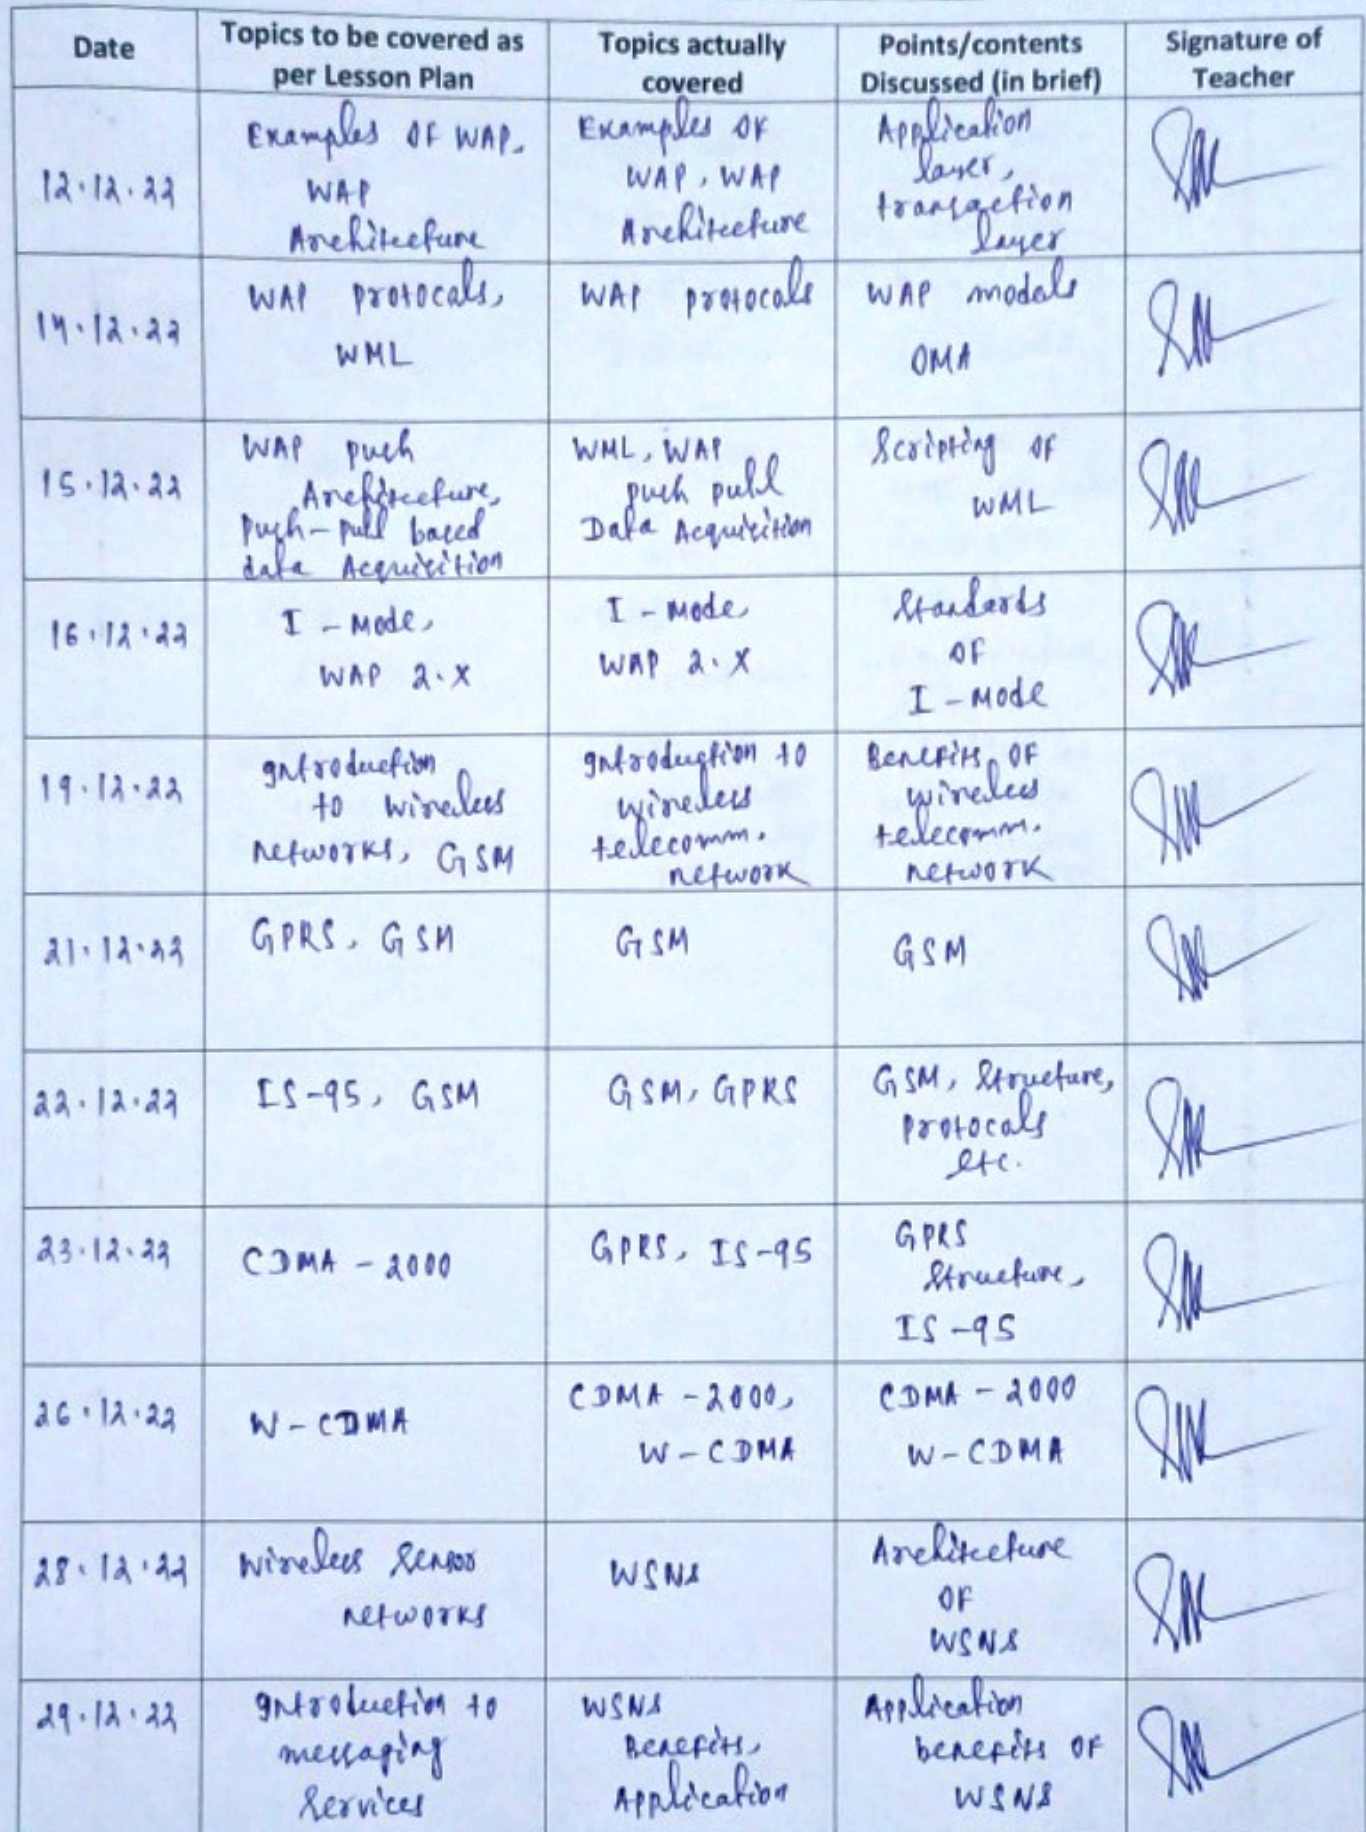 Date
Topics to be covered as
per Lesson Plan
Topics actually
covered
Points/contents
Discussed (in brief)
Signature of
Teacher
12.12.22
Examples OF WAP,
WAP
Architecture
Examples OF
WAP, WAP
Architecture
Application
layer,
transaction
layer
14.12.22
WAP protocals,
WML
WAP protocals
WAP models
OMA
15.12.22
WAP push
Architecture,
Push-pull based
data Acquisition
WML, WAP
push pull
Data Acquisition
Scripting OF
WML
16.12.22
I - Mode,
WAP 2.X
I - Mode,
WAP 2.X
Standards
OF
I - Mode
19.12.22
Introduction
to wireless
networks, GSM
Introduction to
wireless
telecomm.
network
Benefits OF
wireless
telecomm.
network
21.12.22
GPRS, GSM
GSM
GSM
22.12.22
IS-95, GSM
GSM, GPRS
GSM, Structure,
Protocals
etc.
23.12.22
CDMA - 2000
GPRS, IS-95
GPRS
Structure,
IS-95
26.12.22
W-CDMA
CDMA - 2000,
W-CDMA
CDMA - 2000
W-CDMA
28.12.22
Wireless Sensor
networks
WSNs
Architecture
OF
WSNs
29.12.22
Introduction to
messaging
Services
WSNs
Benefits,
Application
Application
benefits OF
WSNs